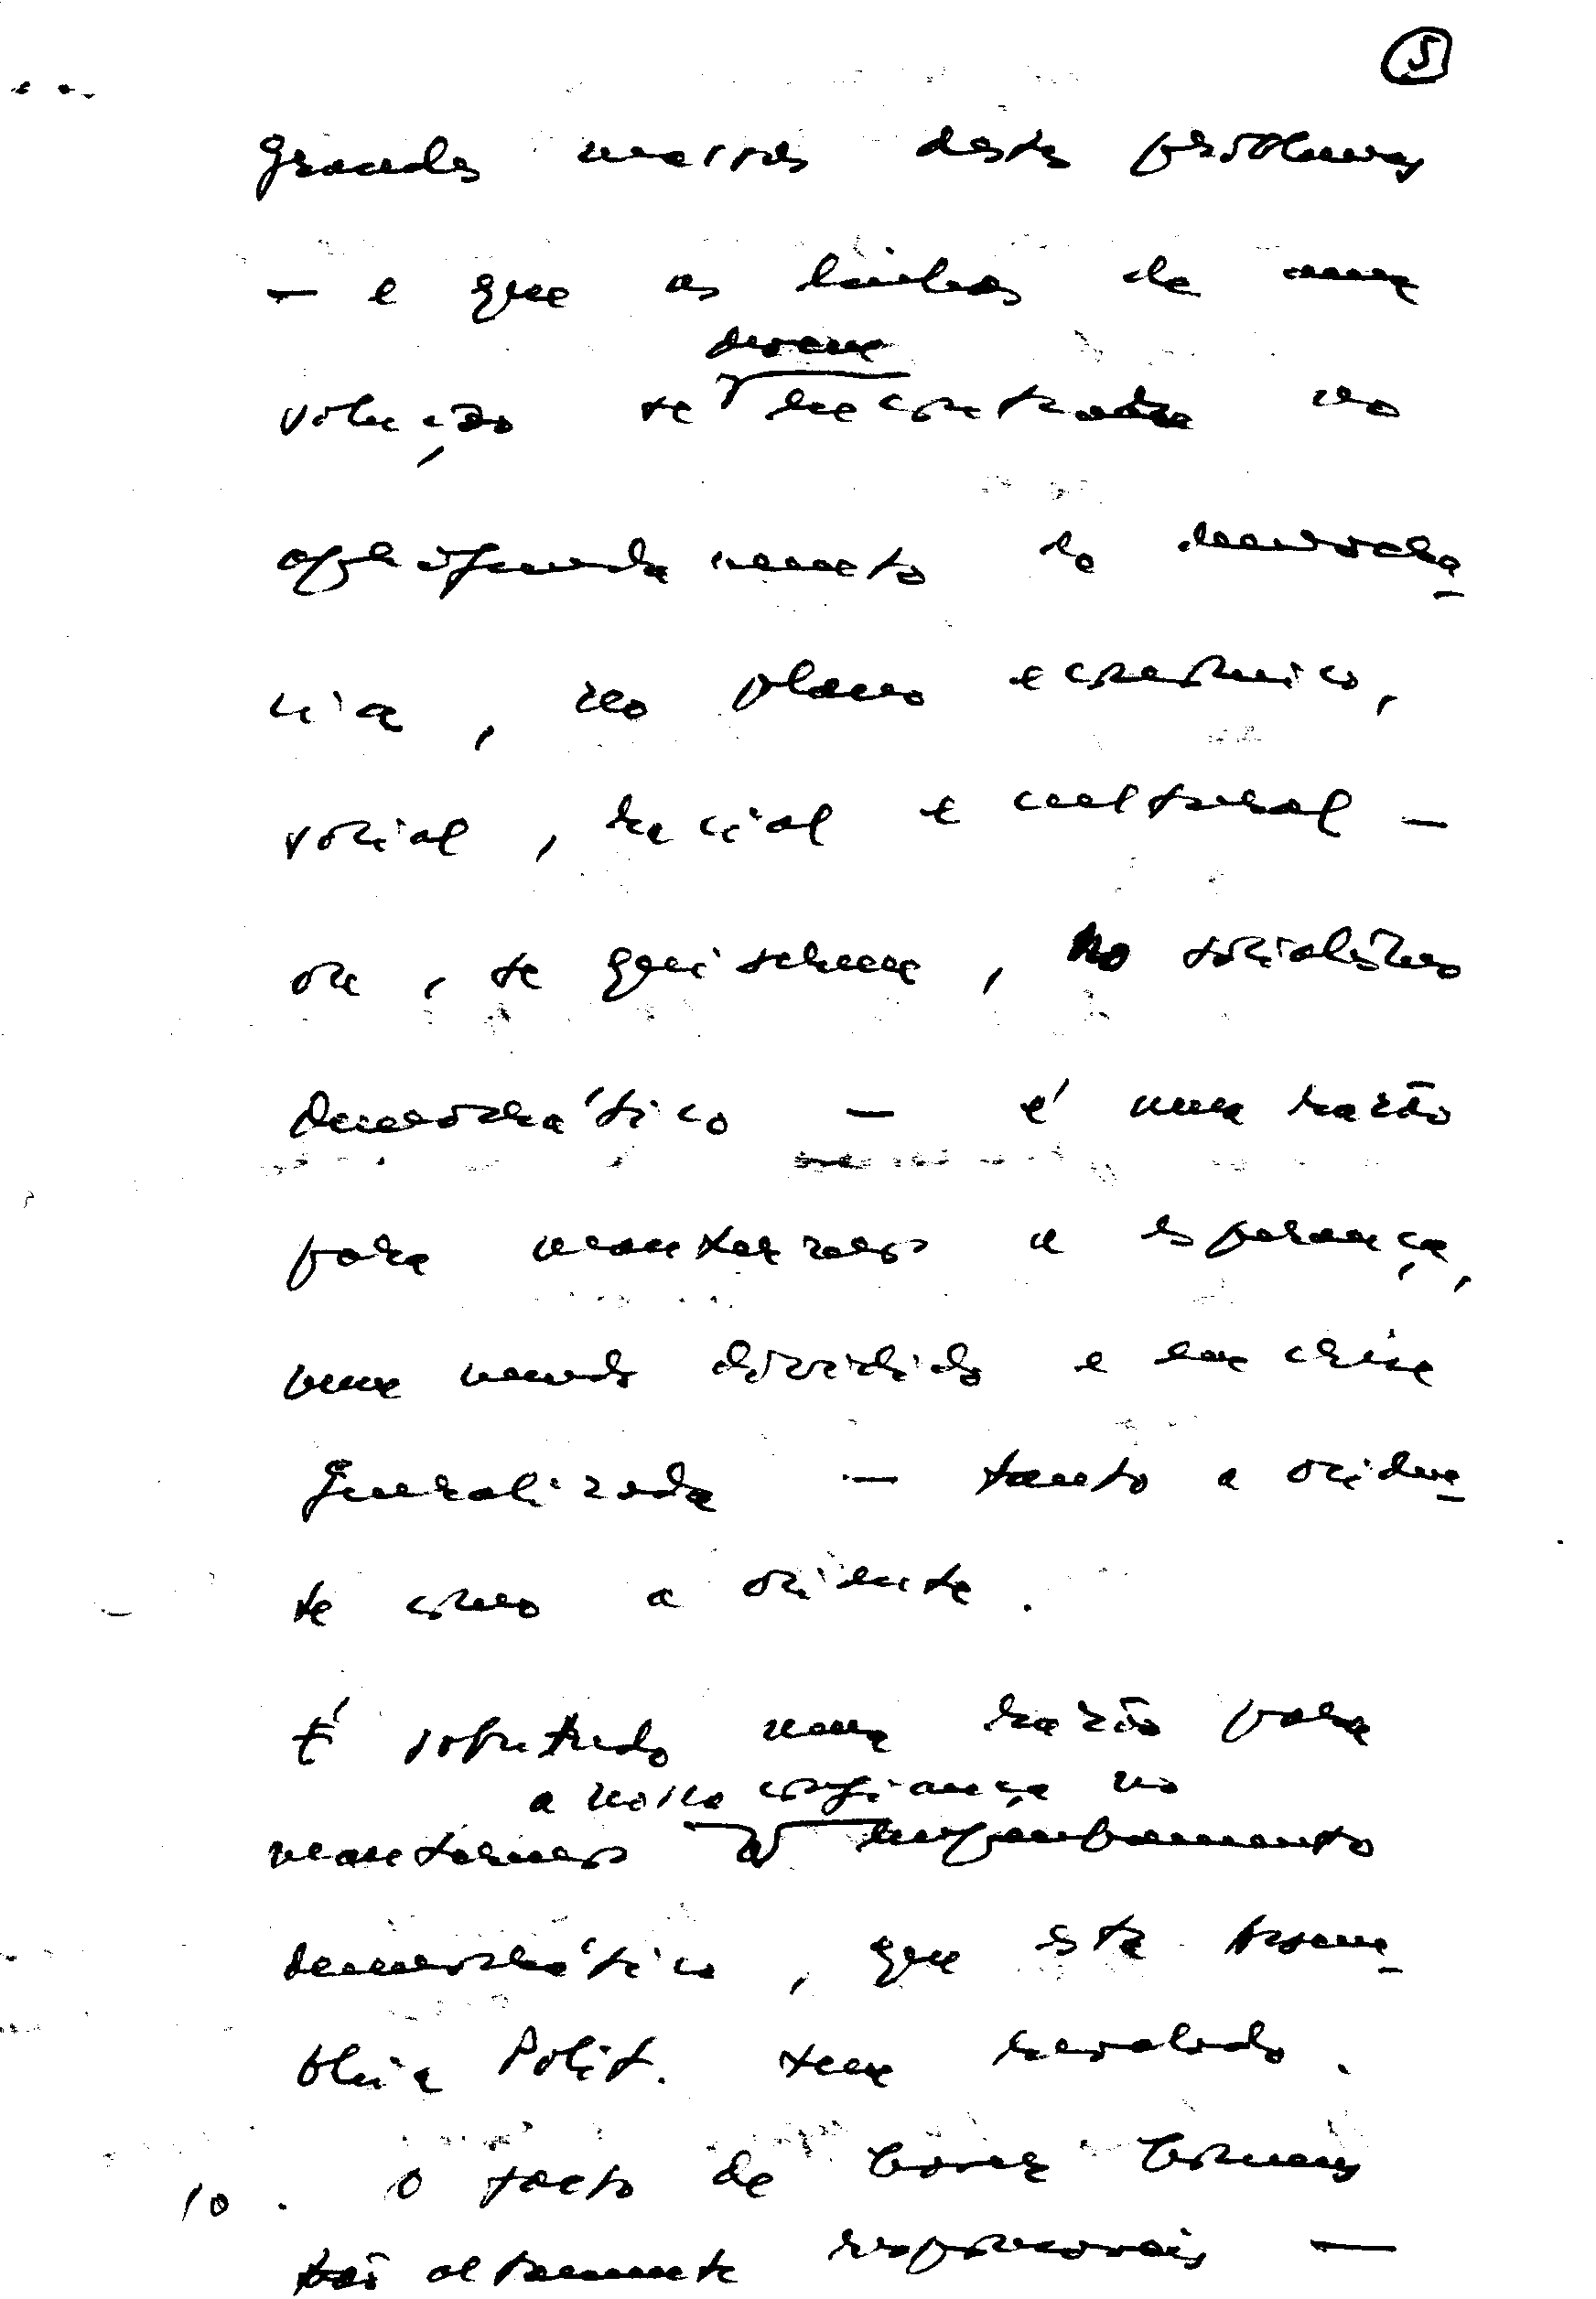 5
grandes massas destes problemas
— e que as linhas de uma
devem
solução se encontrar no
aprofundamento da democra-
cia, no plano económico,
social, racial e cultural —
ou, se quiserem, no socialismo
democrático — é uma razão
para mantermos a esperança,
num mundo dividido e em crise
generalizada — tanto a ociden-
te como a oriente.
É sobretudo uma razão para
a nossa confiança no
mantermos
democrático, que esta
Polit. tem revelado.
10. O facto de homens
tão altamente responsáveis —